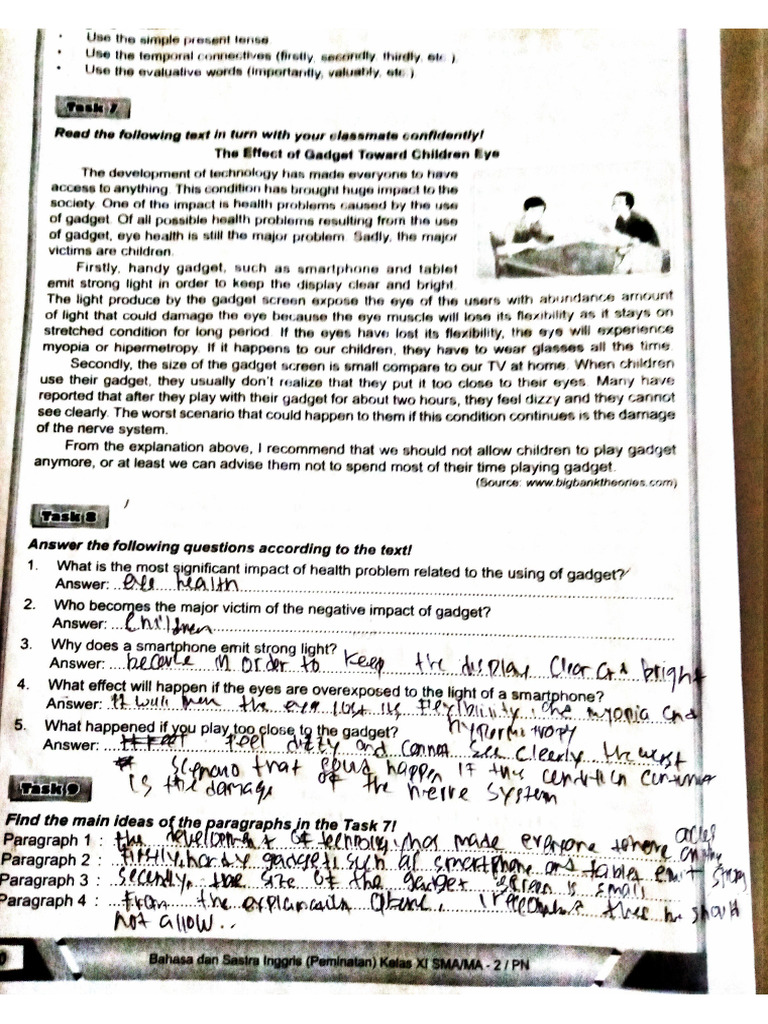 • Use the simple present tense
• Use the temporal connectives (firstly, secondly, thirdly, etc.).
• Use the evaluative words (importantly, valuably, etc.).
Task 7
Read the following text in turn with your classmate confidently!
The Effect of Gadget Toward Children Eye
The development of technology has made everyone to have
access to anything. This condition has brought huge impact to the
society. One of the impact is health problems caused by the use
of gadget. Of all possible health problems resulting from the use
of gadget, eye health is still the major problem. Sadly, the major
victims are children.
Firstly, handy gadget, such as smartphone and tablet
emit strong light in order to keep the display clear and bright.
The light produce by the gadget screen expose the eye of the users with abundance amount
of light that could damage the eye because the eye muscle will lose its flexibility as it stays on
stretched condition for long period. If the eyes have lost its flexibility, the eye will experience
myopia or hipermetropy. If it happens to our children, they have to wear glasses all the time.
Secondly, the size of the gadget screen is small compare to our TV at home. When children
use their gadget, they usually don't realize that they put it too close to their eyes. Many have
reported that after they play with their gadget for about two hours, they feel dizzy and they cannot
see clearly. The worst scenario that could happen to them if this condition continues is the damage
of the nerve system.
From the explanation above, I recommend that we should not allow children to play gadget
anymore, or at least we can advise them not to spend most of their time playing gadget.
(Source: www.bigbanktheories.com)
Task 8
Answer the following questions according to the text!
1. What is the most significant impact of health problem related to the using of gadget?
Answer: eye health
2. Who becomes the major victim of the negative impact of gadget?
Answer: Children
3. Why does a smartphone emit strong light?
Answer: because in order to keep the display clear and bright
4. What effect will happen if the eyes are overexposed to the light of a smartphone?
Answer: It will the eye lost its flexibility, the myopia and
hypermetropy
5. What happened if you play too close to the gadget?
Answer: feel dizzy and cannot see clearly the worst
scenario that happen if this condition continue
is the damage of the nerve system
Task 9
Find the main ideas of the paragraphs in the Task 7!
Paragraph 1 : the development of technology has made everyone to have acces
Paragraph 2 : firstly, handy gadget, such as smartphone and tablet emit strong
Paragraph 3 : secondly, the size of the gadget screen is small
Paragraph 4 : from the explanation above, I recommend that we should
not allow..
Bahasa dan Sastra Inggris (Peminatan) Kelas XI SMA/MA - 2 / PN